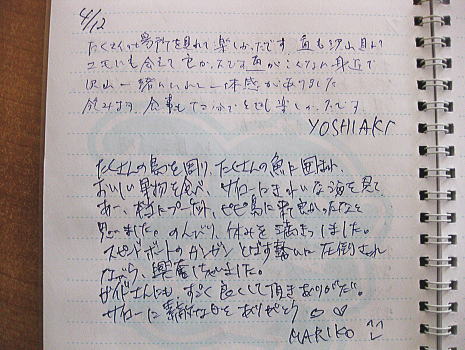 4/12
たくさんの場所を見れて楽しかったです 魚も沢山見れ
コモにも会えて良かったです 魚がこんなに身近で
沢山一緒にいれて一体感がありました
飲み 食事も とても楽しかったです
YOSHIAKI
たくさんの島を周り、たくさんの魚に囲まれ、
おいしい果物を食べ、サロー にきれいな海を見て
あー、本当にプーケット、ピピ島に来て良かったなと
思いました。のんびり、休みを満きつしました。
スピードボートのガンガンとばす勢いに圧倒され
ながら、興奮しちゃいました。
ガイドさんにも すごく良くして頂きありがたい。
サローに素敵な日を ありがとう
MARIKO